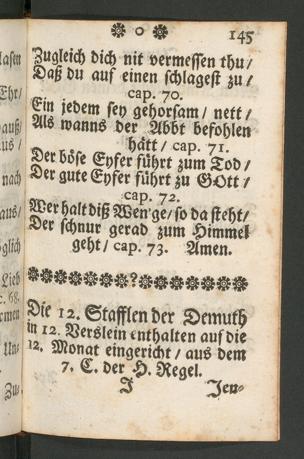 o 145
Zugleich dich nit vermessen thu /
Daß du auf einen schlagest zu /
cap. 70.
Ein jedem sey gehorsam / nett /
Als wanns der Abbt befohlen
hätt / cap. 71.
Der böse Eyfer führt zum Tod /
Der gute Eyfer führt zu GOtt /
cap. 72.
Wer halt diß Wen'ge / so da steht /
Der schnur gerad zum Himmel
geht / cap. 73. Amen.
?
Die 12. Stafflen der Demuth
in 12. Verslein enthalten auf die
12. Monat eingericht / aus dem
7. C. der H. Regel.
J Jen-
lasen
Ehr /
auß /
us /
nach
aus /
glich
Lieb
c. 68.
Un-
Zu-